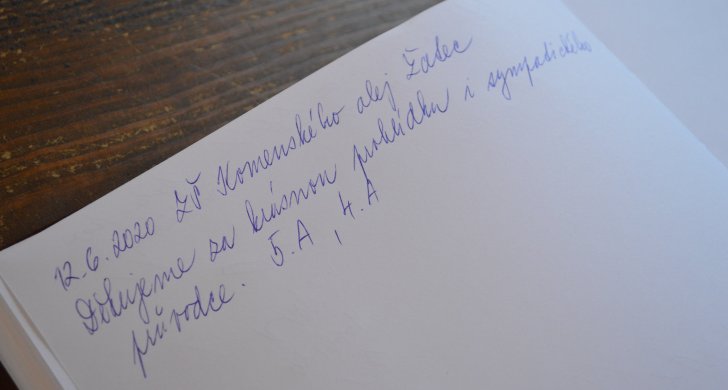 12.6.2020 ZŠ Komenského alej Žatec
Děkujeme za krásnou prohlídku i sympatického
průvodce. 5.A, 4.A